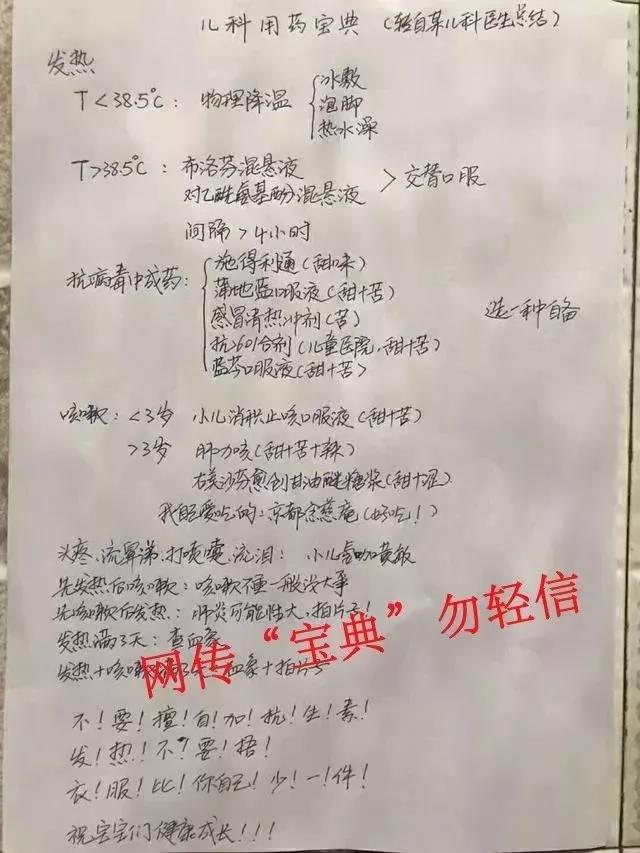 儿科用药宝典 (轻自某儿科医生总结)
发热
T<38.5℃: 物理降温 { 冰敷
泡脚
热水澡
T>38.5℃: 布洛芬混悬液
对乙酰氨基酚混悬液 > 交替口服
间隔>4小时
抗病毒中成药: { 施得利通(甜味)
蒲地蓝口服液(甜+苦)
感冒清热冲剂(苦) 选一种自备
抗601合剂(儿童医院,甜+苦)
蓝芩口服液(甜+苦)
咳嗽: <3岁 小儿消积止咳口服液(甜+苦)
>3岁 肺力咳(甜+苦+辣)
右美沙芬愈创甘油醚糖浆(甜+涩)
我自己爱吃的: 京都念慈庵(好吃!)
头疼、流鼻涕、打喷嚏、流泪: 小儿氨咖黄敏
先发热后咳嗽: 咳嗽不重一般没大事
先咳嗽后发热: 肺炎可能性大,拍片子!
发热满3天: 查血象
发热+咳嗽满3天: 血象+拍片子
网传“宝典”勿轻信
不!要!擅!自!加!抗!生!素!
发!热!不!要!捂!
衣!服!比!你自己!少!一!件!
祝宝宝们健康成长!!!